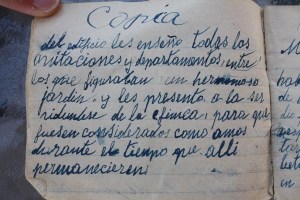 Copia
del edificio les enseño todas las
avitaciones y departamentos, entre
los que figuraban un hermonoso
jardin. y les presento a la ser
ridumbre de la efinica, para que
fuesen considerados como amos
durante el tiempo que alli
permanecieren